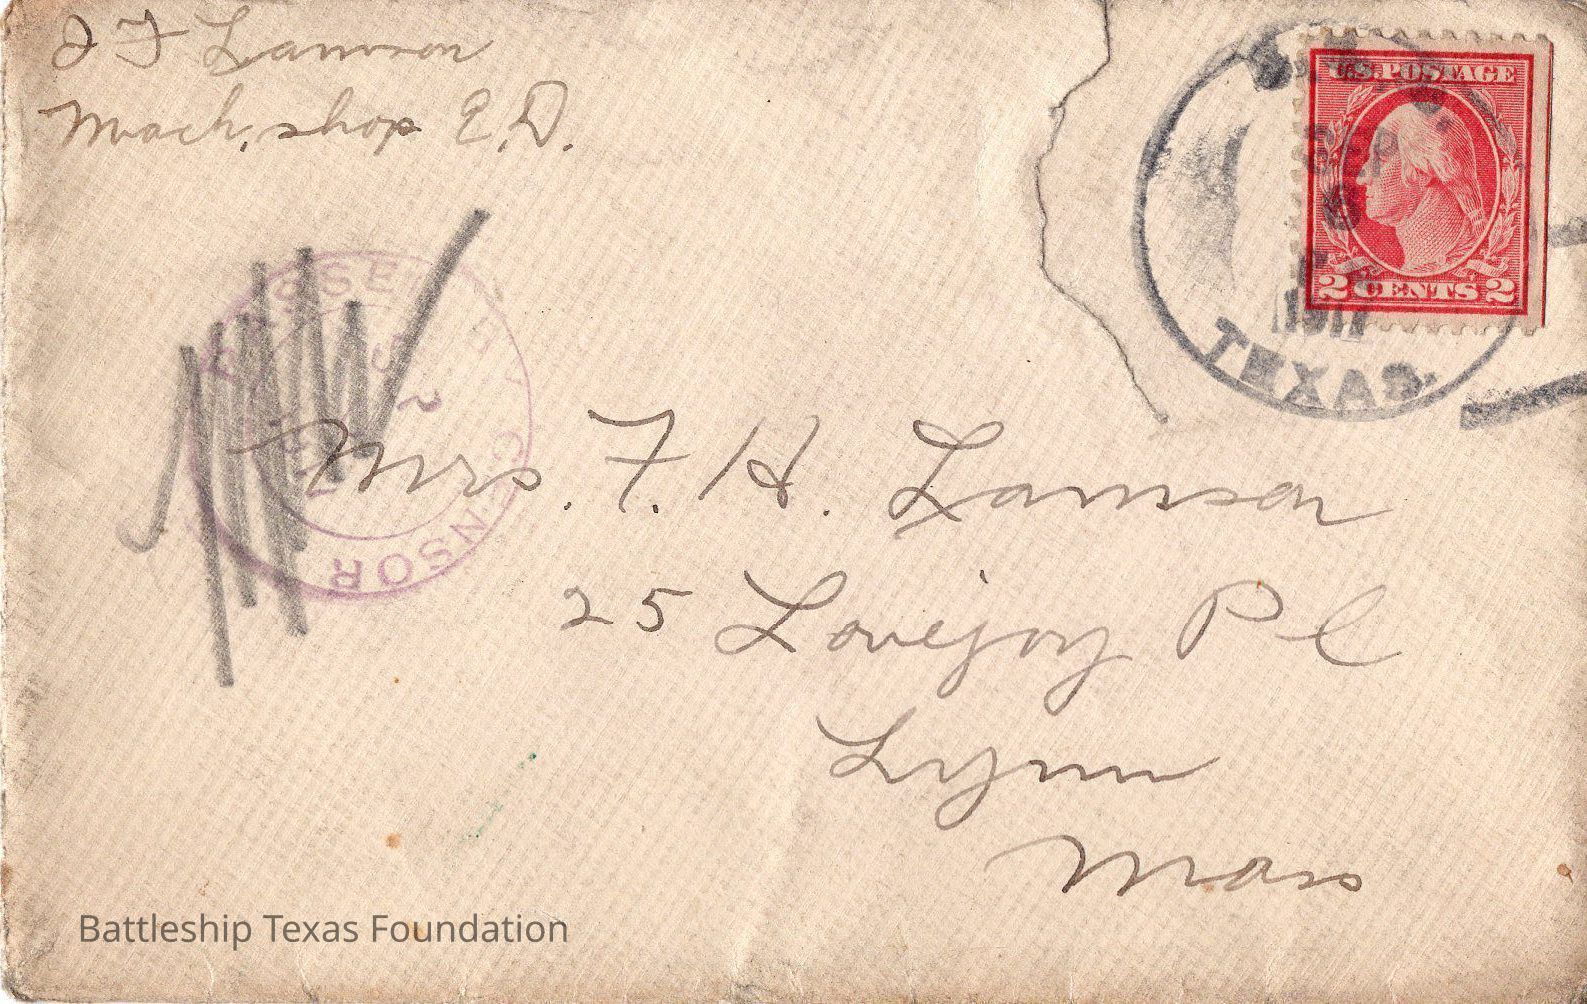 J F Lamson
Mach. shop E.D.
U.S. POSTAGE
2 CENTS 2
SEP
6
1917
TEXAS.
PASSED BY CENSOR
Mrs. F. H. Lamson
25 Lovejoy Pl
Lynn
Mass
Battleship Texas Foundation